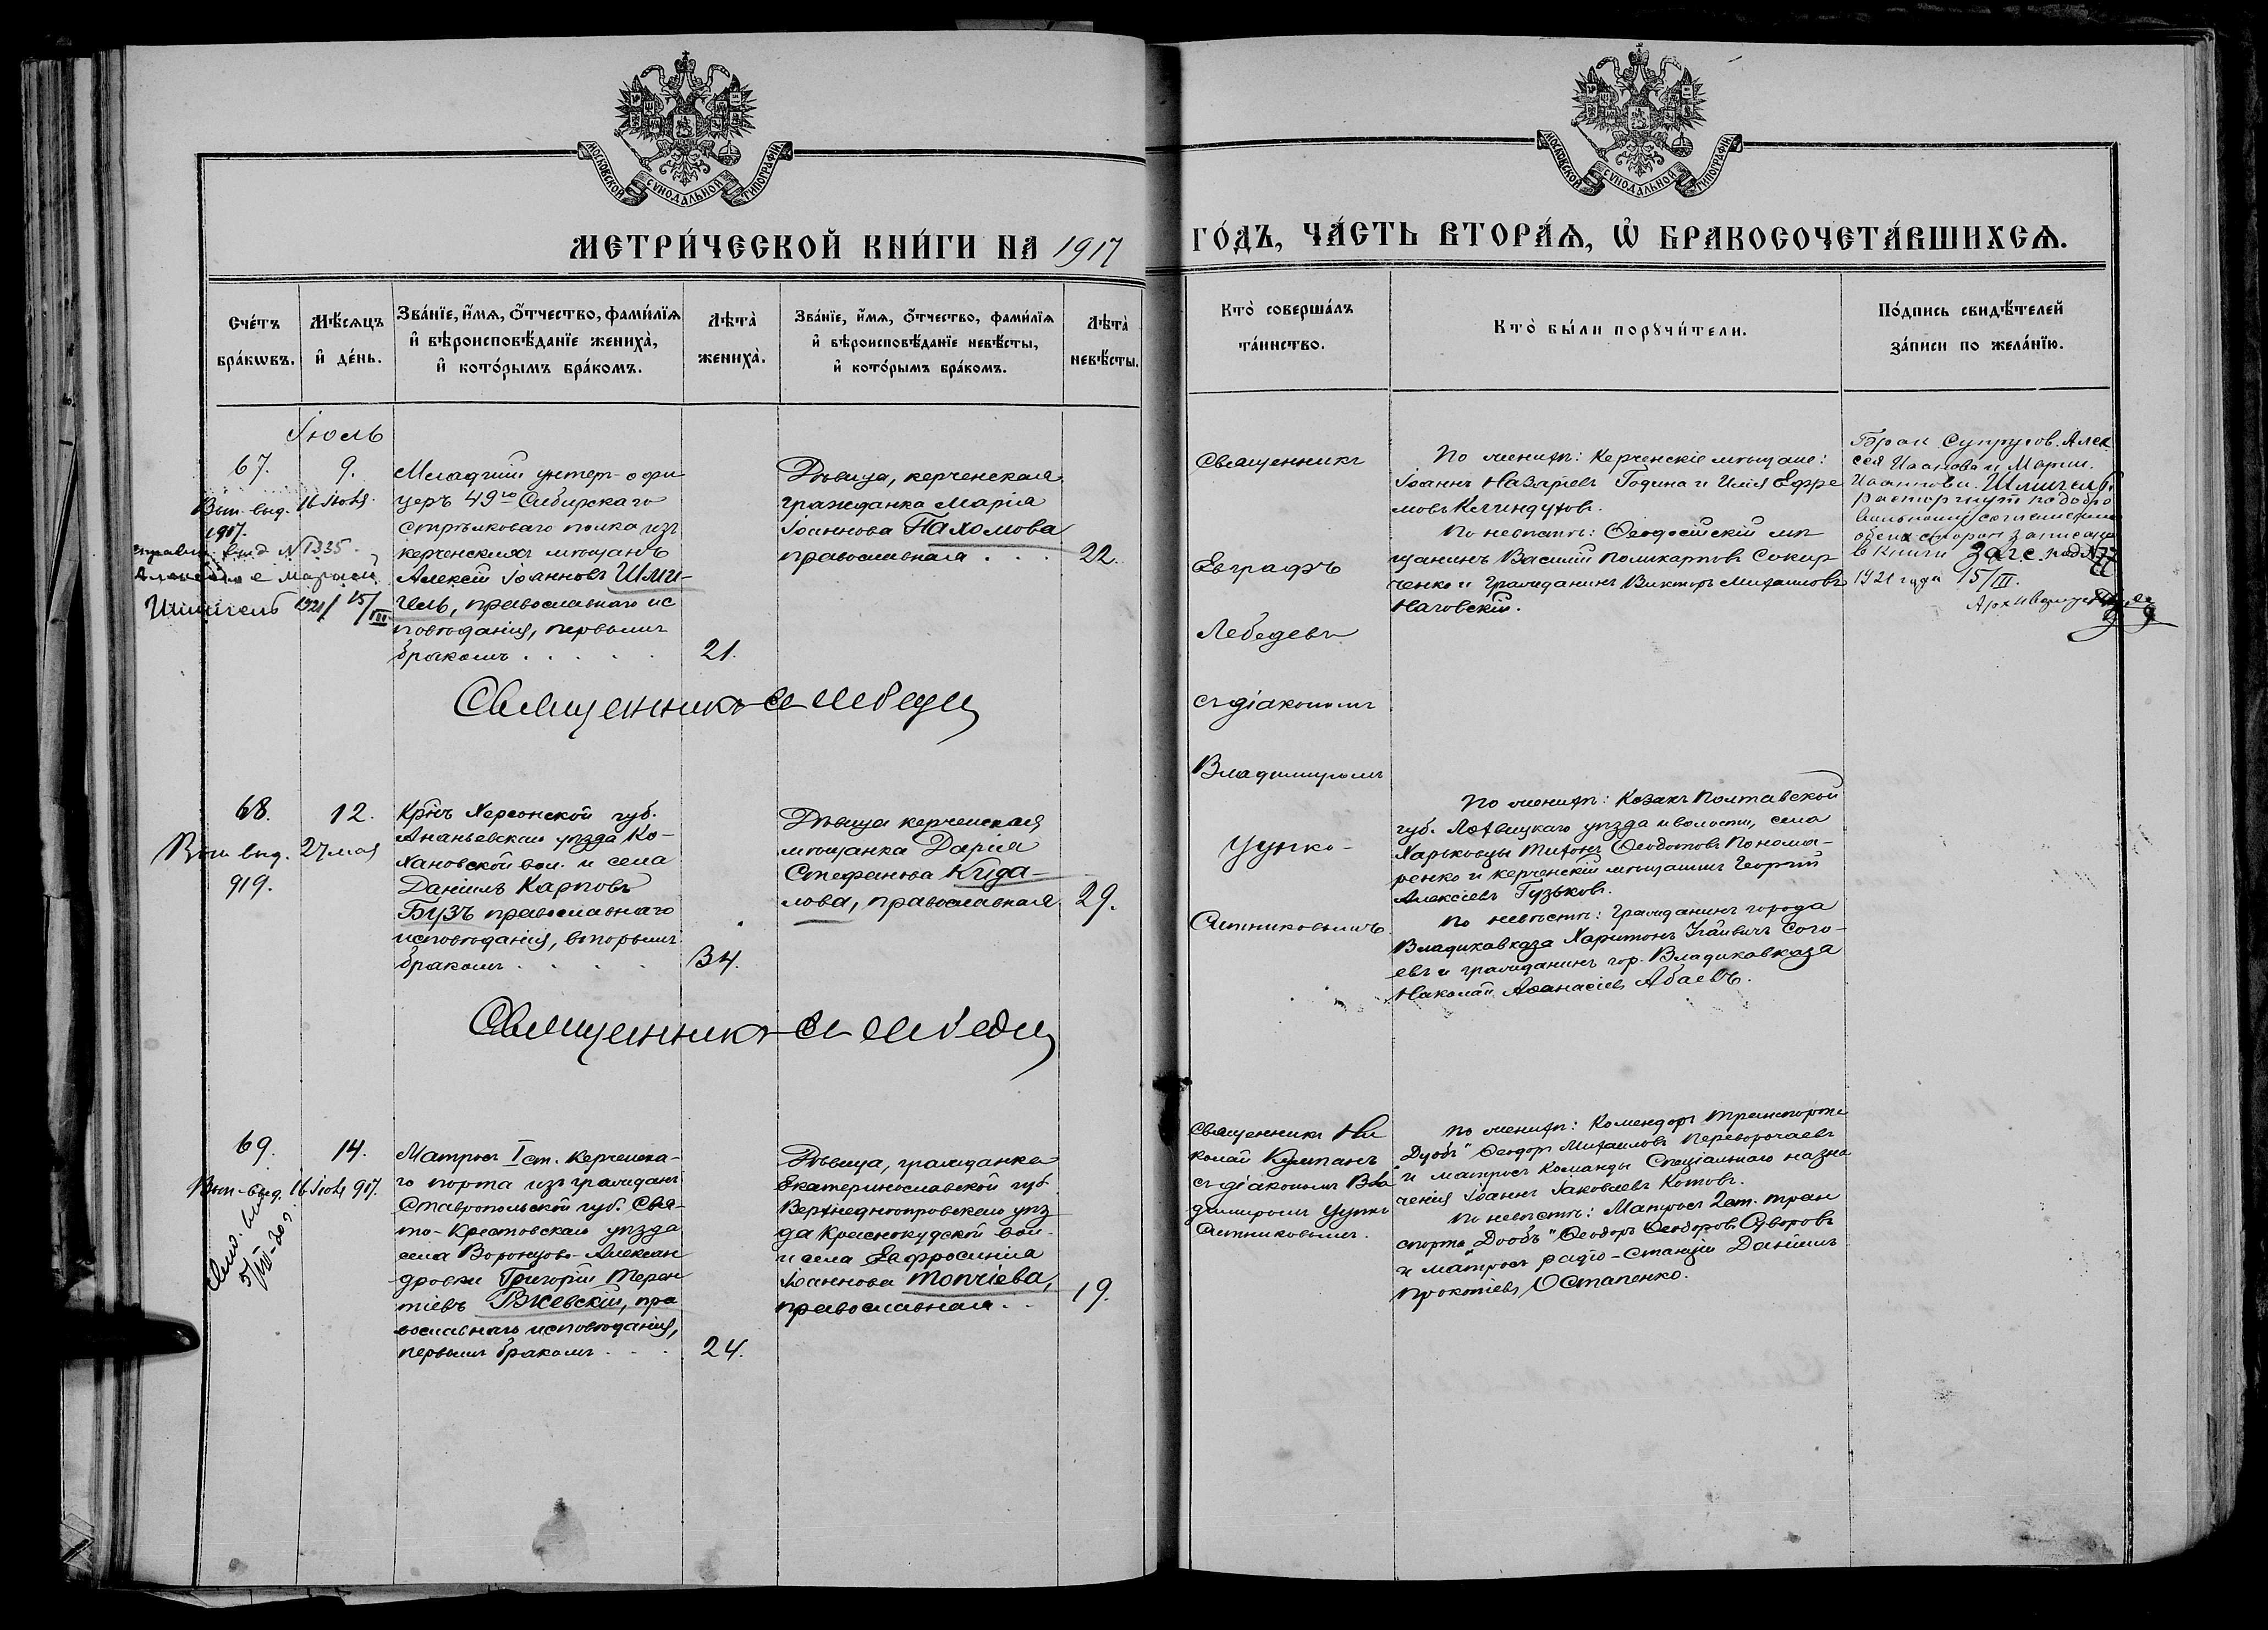 МОСКОВСКОЙ СѴНОДАЛЬНОЙ ТИПОГРАФИИ
МОСКОВСКОЙ СѴНОДАЛЬНОЙ ТИПОГРАФИИ
МЕТРИ́ЧЕСКОЙ КНИ́ГИ НА 1917
ГО́ДЪ, ЧА́СТЬ ВТОРА́Ѧ, Ѡ҆ БРАКОСОЧЕТА́ВШИХСѦ.
Сче́тъ бра́кѡвъ.
Мѣ́сѧцъ и҆ де́нь.
Зва́нїе, и҆́мѧ, ѻ҆́тчество, фами́лїѧ
и҆ вѣроисповѣ́данїе жениха̀,
и҆ кото́рымъ бра́комъ.
Лѣта̀ жениха̀.
Зва́нїе, и҆́мѧ, ѻ҆́тчество, фами́лїѧ
и҆ вѣроисповѣ́данїе невѣ́сты,
и҆ кото́рымъ бра́комъ.
Лѣта̀ невѣ́сты.
Кто̀ соверша́лъ
та́инство.
Кто̀ бы́ли порꙋчи́тели.
По́дпись свидѣ́телей
за́писи по жела́нїю.
Іюль
67.
9.
Вып. выд. 16 Іюля
1917.
справка выд № 1335
Алексею с Марией
Шмигель 1921/ 15/III
Младшій унтер-офи
церъ 49го Сибирскаго
стрѣлковаго полка изъ
керченскихъ мѣщанъ
Алексій Іоанновъ Шми-
гель, православнаго ис
повѣданія, первымъ
бракомъ . . . .
21.
Дѣвица, керченская
гражданка Марія
Іоаннова Пахомова
православная . . .
22.
Священникъ
Евграфъ
Лебедевъ
съ діакономъ
Владимиромъ
Цупко-
Ситниковымъ
По женихѣ: Керченскіе мѣщане:
Іоаннъ Назаріевъ Година и Илія Ефре
мовъ
По невѣстѣ: Ѳеодосійскій мѣ
щанинъ Василій Поликарповъ Сокир
ченко и гражданинъ Викторъ Михаиловъ
Наговскій.
Брак Супругов. Алек
сея Иванова и Марии
Ивановой Шмигель
расторгнут по добро
вольному согласию
обеих сторон записано
в книги Загс. под №77
1921 года 15/III.
Священникъ Ев Лебедев
68.
12.
Вып выд. 27 мая
919.
Крнъ Херсонской губ.
Ананьевскаго уѣзда Ко-
хановской вол. и села
Даніилъ Карповъ
Бузъ православнаго
исповѣданія, вторымъ
бракомъ . . . .
34.
Дѣвица керченская
мѣщанка Дарія
Стефанова Кида-
лова, православная
29.
По женихѣ: Козакъ Полтавской
губ. Лохвицкаго уѣзда и волости, села
Харьковцы Тихонъ Ѳеодотовъ Понома-
ренко и керченскій мѣщанинъ Георгій
Алексіевъ Гузьковъ.
По невѣстѣ: гражданинъ города
Владикавказа Харитонъ Сого-
евъ и гражданинъ гор. Владикавказа
Николай Аѳанасіевъ Абаевъ.
Священникъ Ев Лебедев
69.
14.
Вып-выд. 16 Іюля 917.
Матросъ I ст. Керченска-
го порта изъ гражданъ
Ставропольской губ. Свя-
то-Крестовскаго уѣзда
села Воронцово-Александ
дровки Григорій Терен
тіевъ Ржевскій, пра
вославнаго исповѣданія,
первымъ бракомъ . . .
24.
Дѣвица, гражданка
Екатеринославской губ
Верхнеднѣпровскаго уѣз
да Краснокудской вол.
и села Евфросинія
Іоаннова Топчіева,
православная . .
19.
Священникъ Ни
колай
съ діакономъ Вла
димиромъ Цупко
Ситниковымъ.
По женихѣ: Комендоръ транспорта
„Дообъ" Ѳеодоръ Михаиловъ Переворочаевъ
и матросъ команды Спеціальнаго назна
ченія Іоаннъ Іаковлевъ Котовъ.
По невѣстѣ: Матросъ 2 ст. тран
спорта „Дообъ" Ѳеодоръ Ѳеодоровъ Суворовъ
и матросъ радіо-станціи Даніилъ
Прокопіевъ Остапенко.